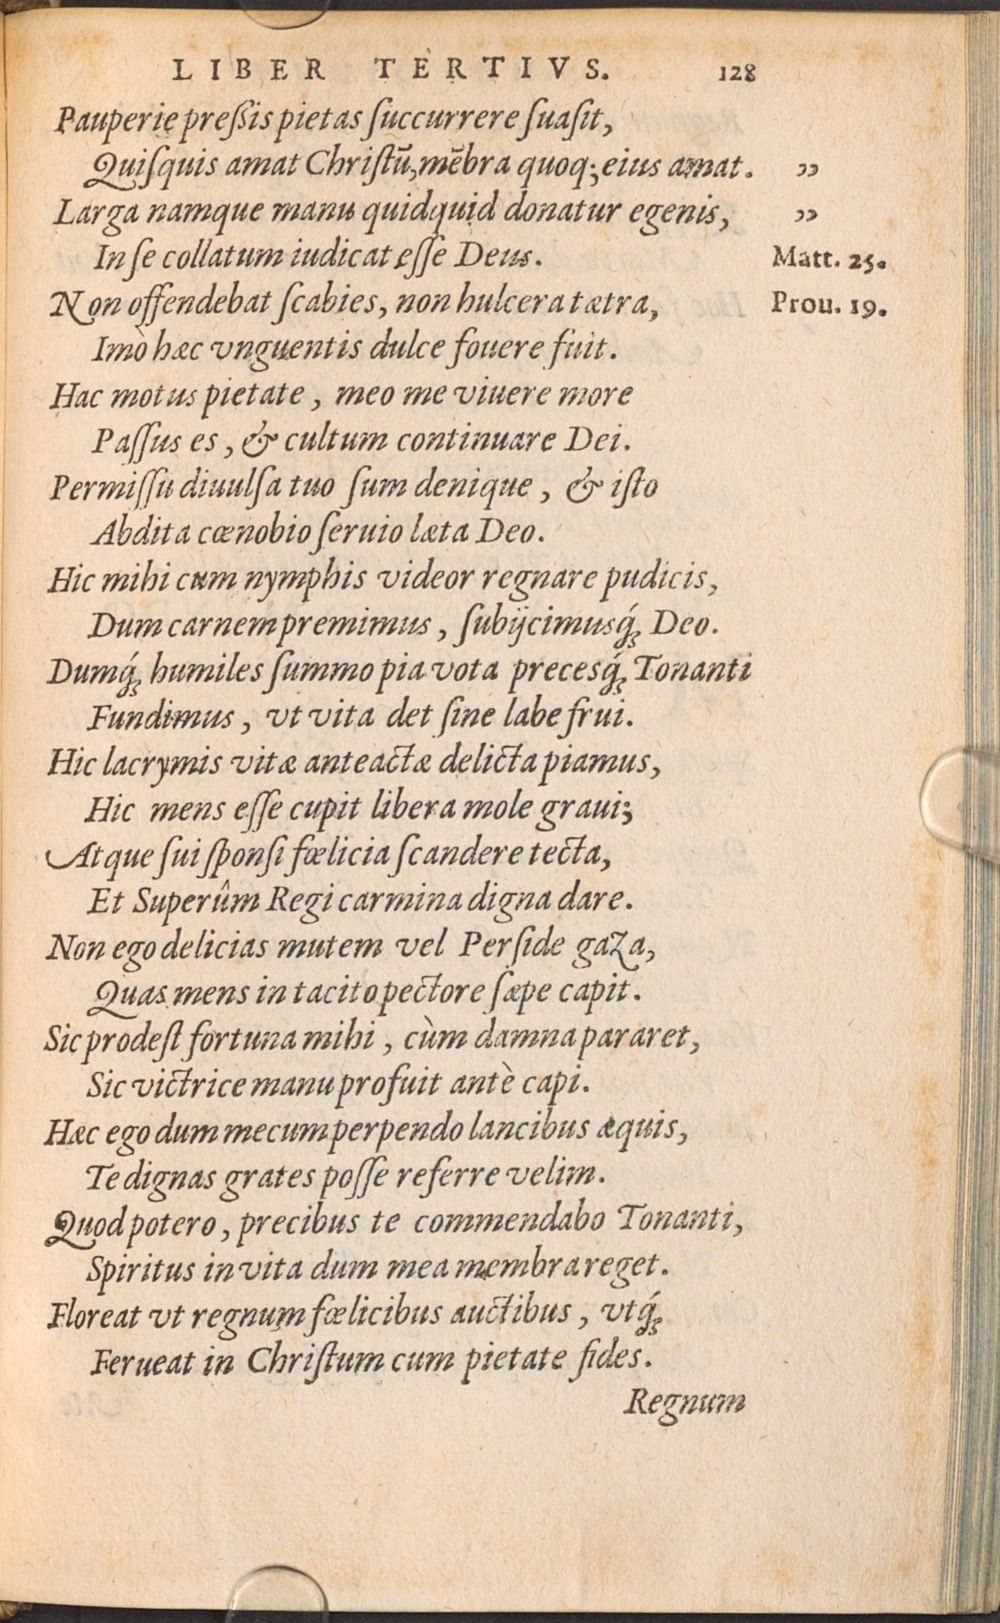 LIBER TERTIVS. 128
Pauperie preſsis pietas ſuccurrere ſuaſit,
Quiſquis amat Chriſtū, mēbra quoq; eius amat. „
Larga namque manu quidquid donatur egenis, „
In ſe collatum iudicat eſſe Deus. Matt. 25.
Non offendebat ſcabies, non hulcera tætra, Prou. 19.
Imò hæc vnguentis dulce fouere fuit.
Hac motus pietate, meo me viuere more
Paſſus es, & cultum continuare Dei.
Permiſſu diuulſa tuo ſum denique, & iſto
Abdita cœnobio ſeruio læta Deo.
Hic mihi cum nymphis videor regnare pudicis,
Dum carnem premimus, ſubijcimusq́; Deo.
Dumq́; humiles ſummo pia vota precesq́; Tonanti
Fundimus, vt vita det ſine labe frui.
Hic lacrymis vitæ anteactæ delicta piamus,
Hic mens eſſe cupit libera mole graui;
Atque ſui ſponſi fœlicia ſcandere tecta,
Et Superûm Regi carmina digna dare.
Non ego delicias mutem vel Perſide gaza,
Quas mens in tacito pectore ſæpe capit.
Sic prodeſt fortuna mihi, cùm damna pararet,
Sic victrice manu profuit antè capi.
Hæc ego dum mecum perpendo lancibus æquis,
Te dignas grates poſſe referre velim.
Quod potero, precibus te commendabo Tonanti,
Spiritus in vita dum mea membra reget.
Floreat vt regnum fœlicibus auctibus, vtq́;
Ferueat in Chriſtum cum pietate fides.
Regnum